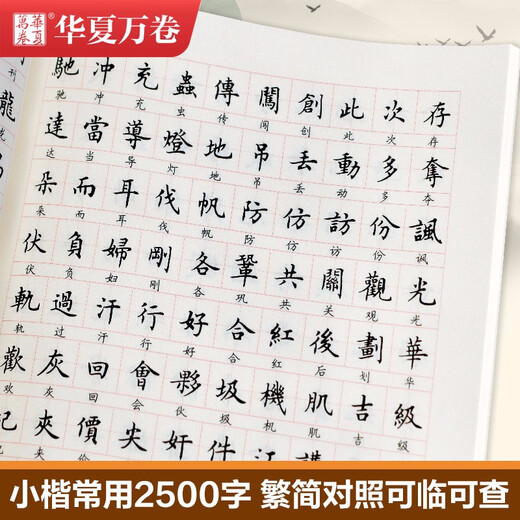 華夏萬卷 华夏万卷
馳 沖 充 蟲 傳 闖 創 此 次 存
驰 冲 充 虫 传 闯 创 此 次 存
達 當 導 燈 地 吊 丟 動 多 奪
达 当 导 灯 地 吊 丢 动 多 夺
朵 而 耳 伐 帆 防 仿 訪 份 諷
朵 而 耳 伐 帆 防 仿 访 份 讽
伏 負 婦 剛 各 鞏 共 關 觀 光
伏 负 妇 刚 各 巩 共 关 观 光
軌 過 汗 行 好 合 紅 後 劃 華
轨 过 汗 行 好 合 红 后 划 华
歡 灰 回 會 夥 圾 機 肌 吉 級
欢 灰 回 会 伙 圾 机 肌 吉 级
夾 價 尖 奸 件
夹 价
刊
龍
龙
小楷常用2500字 繁简对照可临可查